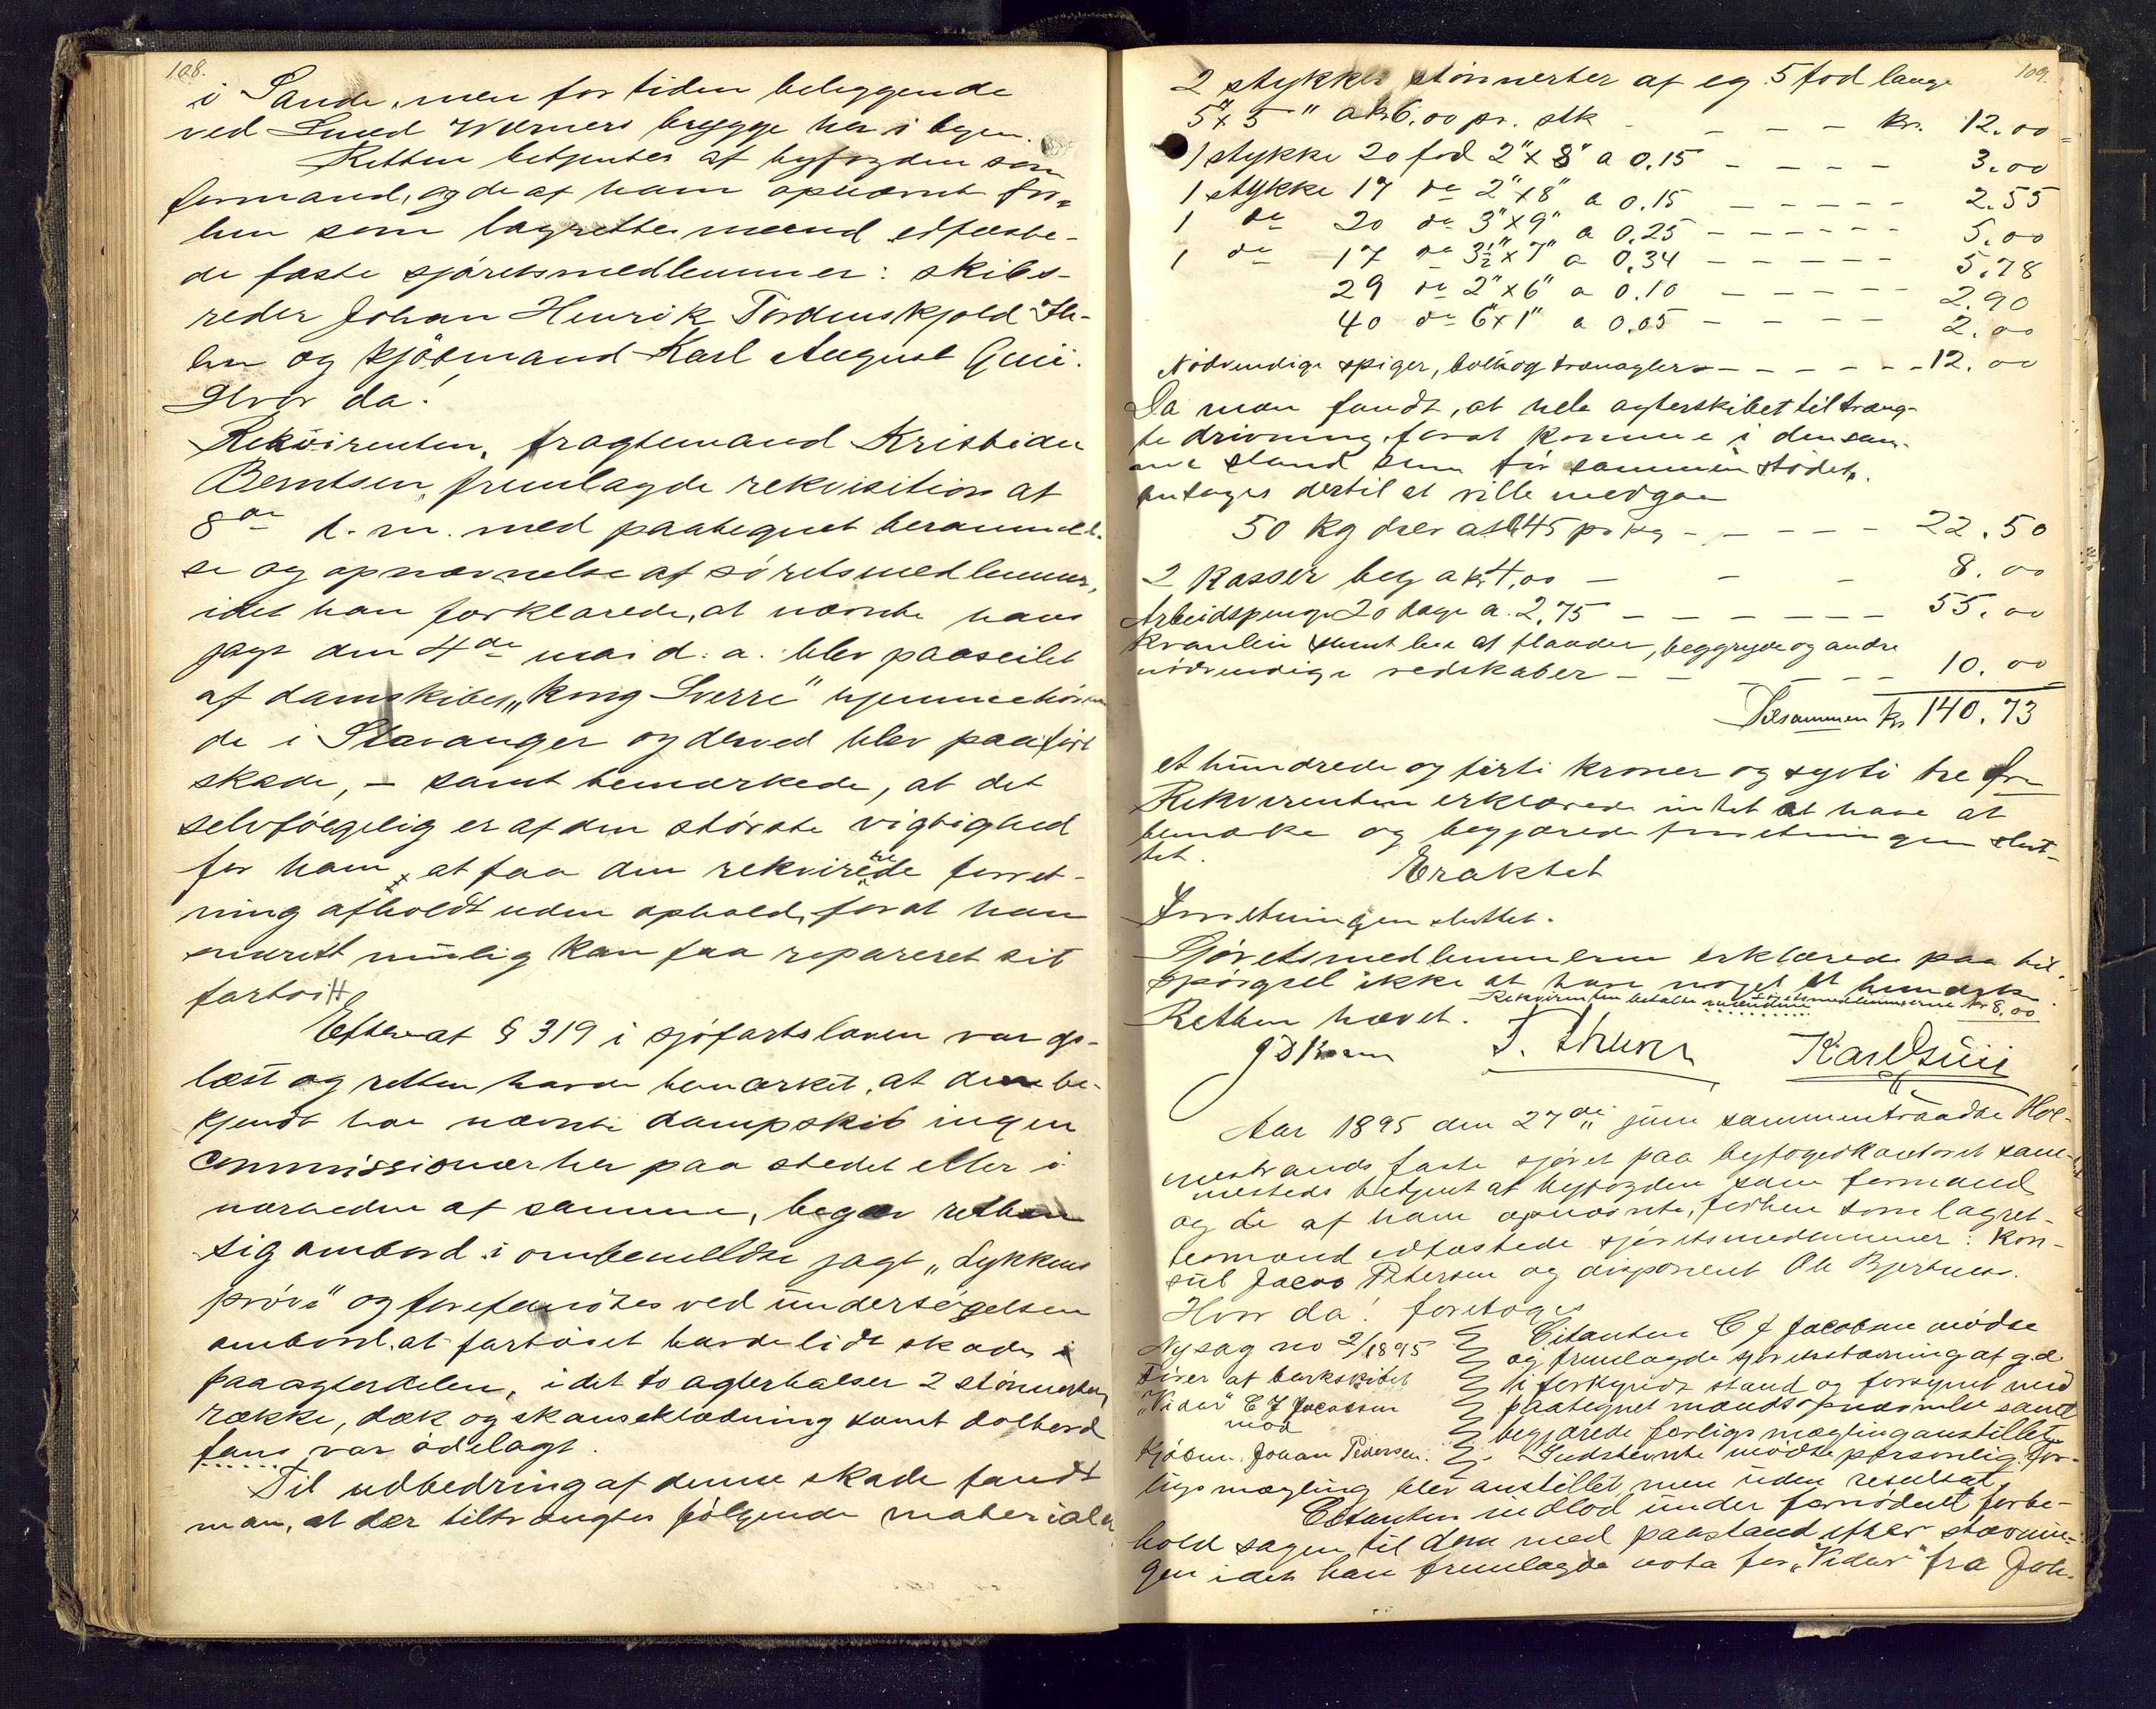 108.
i Sande, men for tiden beliggende
ved Smed Werners brygge her i byen.
Retten betjentes af byfogden som
formand, og de af ham opnævnte for-
hen som lagrettesmænd edfæste-
de faste sjøretsmedlemmer: skibs-
reder Johan Henrik Tordenskjold Thu-
ne og kjøbmand Karl August Guii.
Hvor da!
Rekvirenten, fragtemand Kristian
Berntsen, fremlagde rekvisition af
8de d. m. med paategnet berammel-
se og opnævnelse af sjøretsmedlemmer,
idet han forklarede, at nævnte hans
jagt den 4de mai d. a. blev paaseilet
af damskibet "Kong Sverre" hjemmehøren-
de i Stavanger og derved blev paaført
skade, – samt bemærkede, at det
selvfølgelig er af den største vigtighed
for ham, at faa den rekvirerede forret-
ning afholdt uden ophold, forat han
snarest mulig kan faa repareret sit
fartøi.
Efterat § 319 i sjøfartsloven var op-
læst og retten havde bemærket, at den be-
kjendt har nævnte dampskib ingen
commissionær her paa stedet eller i
nærheden af samme, begav retten
sig ombord i ombemeldte jagt "Lykkens
prøve" og forefandtes ved undersøgelsen
ombord, at fartøiet havde lidt skade i
paa agterdelen, idet to agterhalser 2 størnverter,
række, dæk og skansеklædning samt dolbord
fans var ødelagt.
Til udbedring af denne skade fandt
man, at der tiltrængtes følgende materialer
109.
2 stykker størnverter af eg 5 fod lange
5" x 5" a kr 6.00 pr. stk - - - - kr. 12.00
1 stykke 20 fod 2" x 8" a 0.15 - - - - 3.00
1 stykke 17 do 2" x 8" a 0.15 - - - - - 2.55
1 do 20 do 3" x 9" a 0.25 - - - - - - 5.00
1 do 17 do 3½" x 7" a 0.34 - - - - - 5.78
29 do 2" x 6" a 0.10 - - - - - 2.90
40 do 6" x 1" a 0.05 - - - - 2.00
Nødvendige spiger, bolte og trænagler - - - - - - 12.00
Da man fandt, at hele agterskibet tiltræng-
te drivning, forat komme i den sam-
me stand som før sammenstødet,
antages dertil at ville medgaa
50 kg drev a 0.45 pr kg - - - - - 22.50
2 kasser beg a kr 4.00 - - - 8.00
Arbeidspenge 20 dage a 2.75 - - - - - - 55.00
Kranlin samt leie af flaader, beggryde og andre
nødvendige redskaber - - - - - - 10.00
Tilsammen kr. 140.73
et hundrede og firti kroner og sytti tre øre
Rekvirenten erklærede intet at have at
bemærke og begjærede forretningen slut-
tet.
Eraktet
Forretningen sluttet.
Sjøretsmedlemmerne erklærede paa til-
spørgsel ikke at have noget at bemærke.
Rekvirenten betalte sjøretsmedlemmerne kr 8.00
Retten hævet.
T. Thune
Karl Guii
Aar 1895 den 27de juni sammentraadte Hol-
mestrands faste sjøret paa byfogedkontoret sam-
mesteds betjent af byfogden som formand
og de af ham opnævnte, forhen som lagret-
tesmænd edfæstede sjøretsmedlemmer: kon-
sul Jacob Petersen og disponent Ole Bjertnes.
Hvor da! foretoges
Ny sag no 2/1895
Fører af barkskibet
"Vidar" C J Jacobsen
mod
Kjøbm. Johan Pedersen.
Citanten C J Jacobsen mødte
og fremlagde sjøretsstævning af g.d.
i forkyndt stand og forsynet med
paategnet mandsopnævnelse samt
begjærede forligsmægling anstillet.
Indstevnte mødte personlig. For-
ligsmægling blev anstillet, men uden resultat.
Citanten indlod under fornødent forbe-
hold sagen til dom med paastand efter stævnin-
gen idet han fremlagde nota for "Vidar" fra Joh.